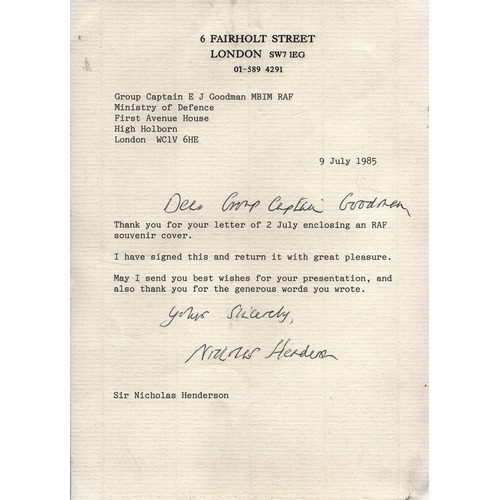 6 FAIRHOLT STREET
LONDON SW7 1EG
01-589 4291
Group Captain E J Goodman MBIM RAF
Ministry of Defence
First Avenue House
High Holborn
London WC1V 6HE
9 July 1985
Dear Group Captain Goodman
Thank you for your letter of 2 July enclosing an RAF
souvenir cover.
I have signed this and return it with great pleasure.
May I send you best wishes for your presentation, and
also thank you for the generous words you wrote.
Yours Sincerely,
Nicholas Henderson
Sir Nicholas Henderson